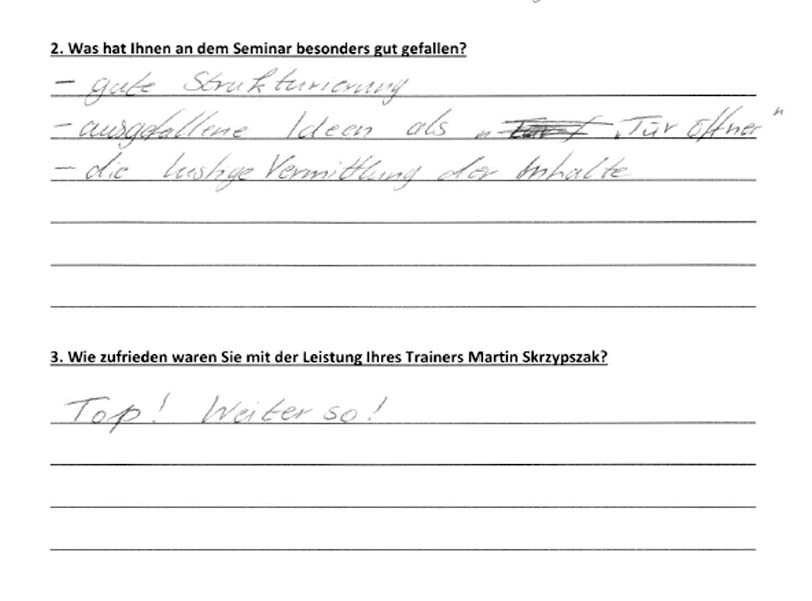 2. Was hat Ihnen an dem Seminar besonders gut gefallen?
- gute Strukturierung
- ausgefallene Ideen als „ „Tür öffner"
- die lustige Vermittlung der Inhalte
3. Wie zufrieden waren Sie mit der Leistung Ihres Trainers Martin Skrzypszak?
Top! Weiter so!